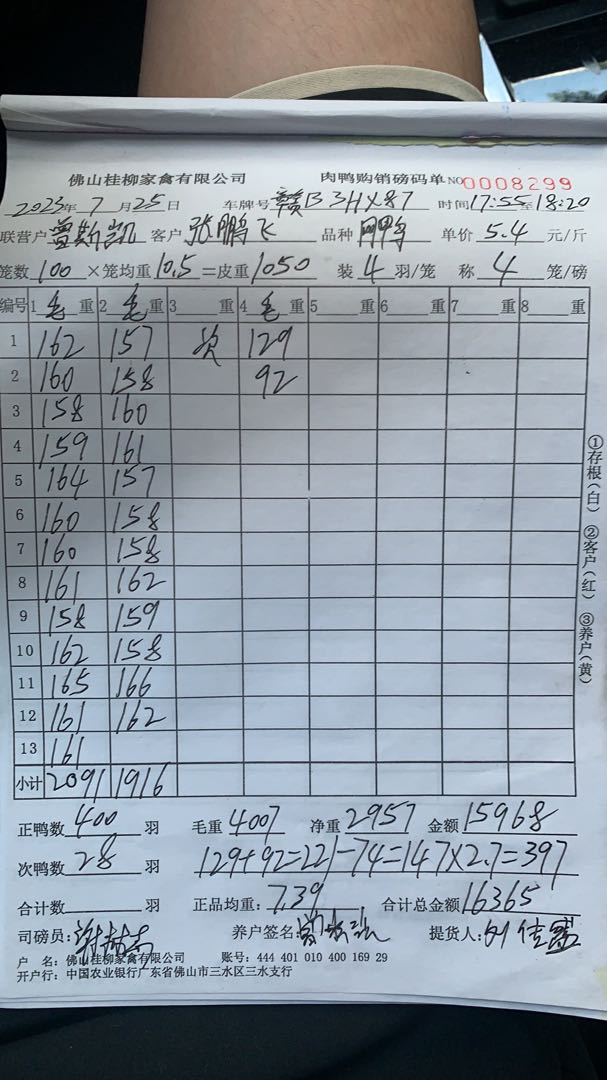 佛山桂柳家禽有限公司 肉鸭购销磅码单 NO 0008299
2023年 7 月 25 日 车牌号 赣B3HX87 时间 17:55至18:20
联营户 曾斯凯 客户 张鹏飞 品种 鸭 单价 5.4 元/斤
笼数 100 ×笼均重 10.5 =皮重 1050 装 4 羽/笼 称 4 笼/磅
编号 1 毛 重 2 毛 重 3 重 4 毛 重 5 重 6 重 7 重 8 重
1 162 157 次 129
2 160 158 92
3 158 160
4 159 161
5 164 157
6 160 158
7 160 158
8 161 162
9 158 159
10 162 158
11 165 166
12 161 162
13 161
小计 2091 1916
正鸭数 400 羽 毛重 4007 净重 2957 金额 15968
次鸭数 28 羽 129+92=221-74=147×2.7=397
合计数 羽 正品均重: 7.39 合计总金额 16365
司磅员: 养户签名: 提货人:
户 名: 佛山桂柳家禽有限公司 账号: 444 401 010 400 169 29
开户行: 中国农业银行广东省佛山市三水区三水支行
①存根(白) ②客户(红) ③养户(黄)